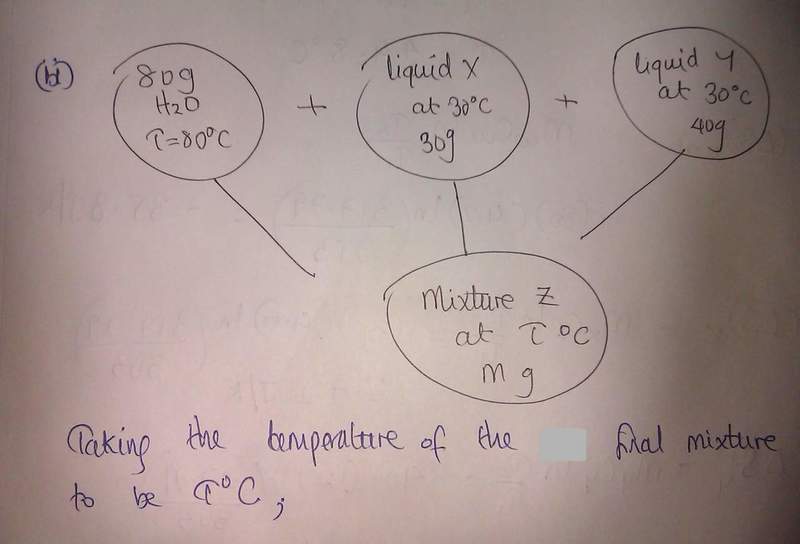 (b)
80g
H2O
T=80°C
+
liquid X
at 30°C
30g
+
liquid Y
at 30°C
40g
Mixture Z
at T °C
m g
Taking the temperature of the final mixture
to be T°C ;